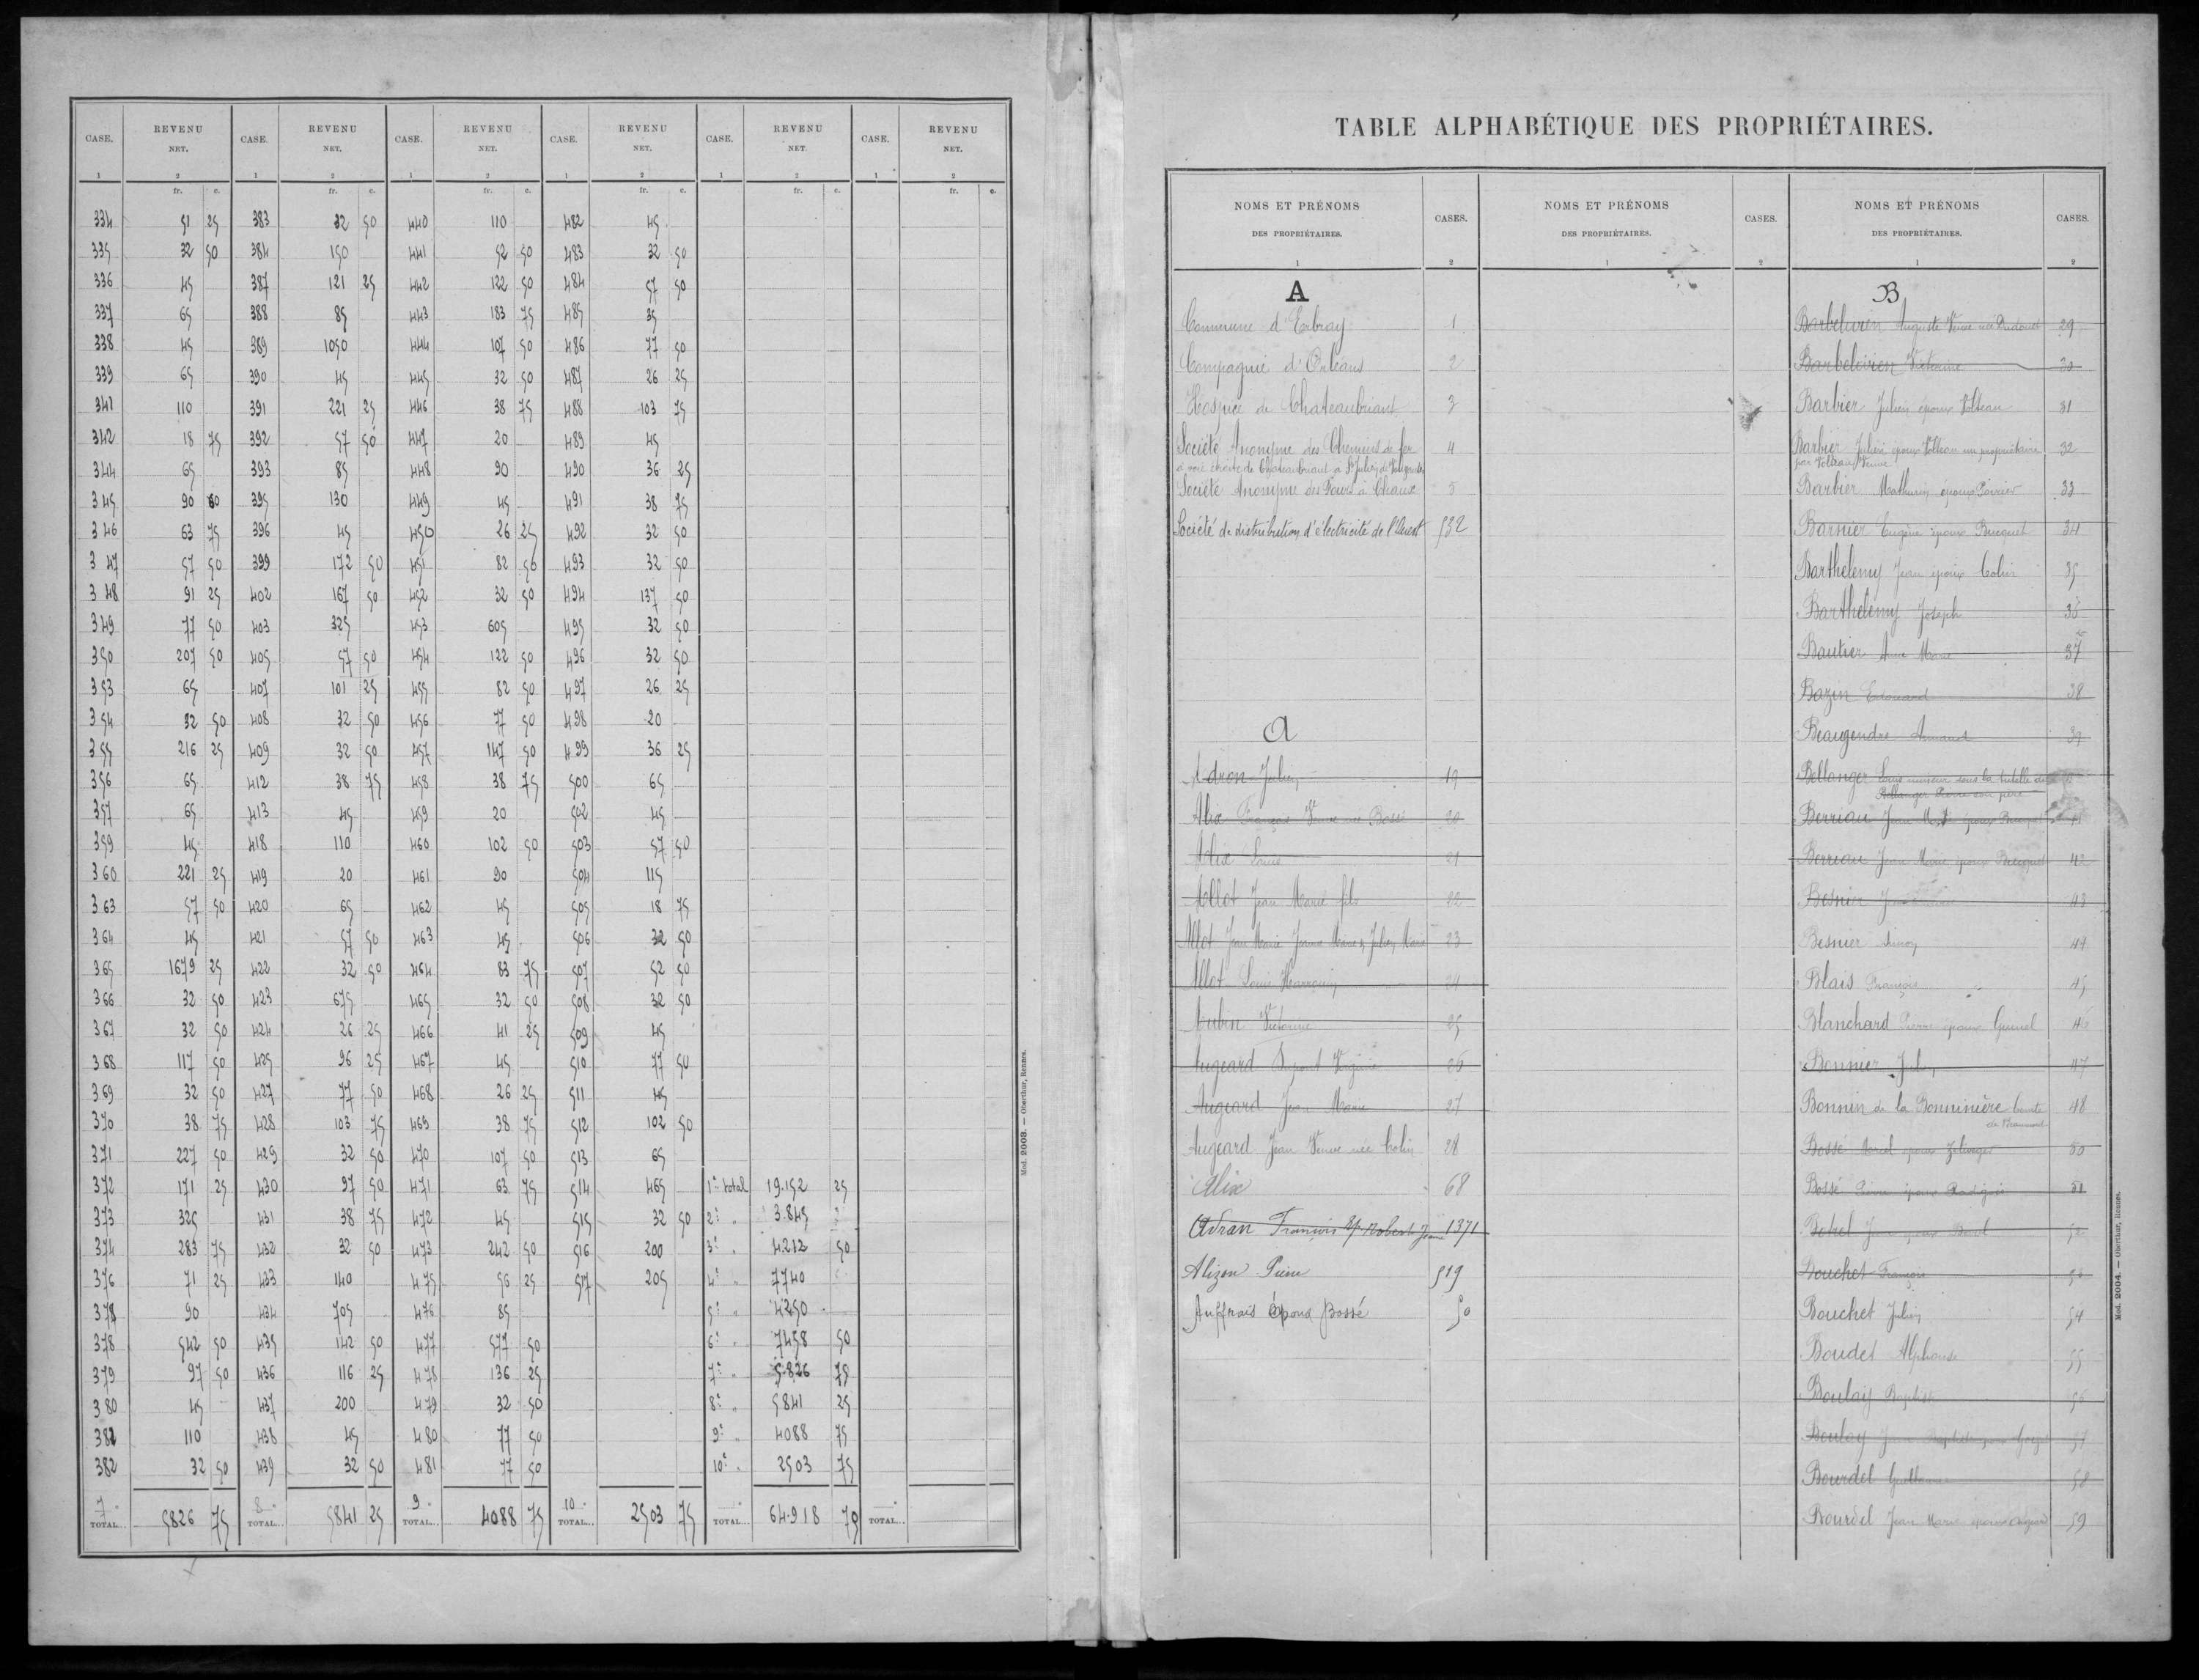 CASE. REVENU NET. CASE. REVENU NET. CASE. REVENU NET. CASE. REVENU NET. CASE. REVENU NET. CASE. REVENU NET.
1 2 1 2 1 2 1 2 1 2 1 2
fr. c. fr. c. fr. c. fr. c. fr. c. fr. c.
334 51 25 383 32 50 440 110 482 45
335 32 50 384 150 441 52 50 483 32 50
336 45 387 121 25 442 122 50 484 57 50
337 65 388 85 443 183 75 485 35
338 45 389 1050 444 107 50 486 77 50
339 65 390 45 445 32 50 487 26 25
341 110 391 221 25 446 38 75 488 103 75
342 18 75 392 57 50 447 20 489 45
344 65 393 85 448 90 490 36 25
345 90 395 130 449 45 491 38 75
346 63 75 396 45 450 26 25 492 32 50
347 57 50 399 172 50 451 82 50 493 32 50
348 91 25 402 167 50 452 32 50 494 137 50
349 77 50 403 325 453 605 495 32 50
350 207 50 405 57 50 454 122 50 496 32 50
353 65 407 101 25 455 82 50 497 26 25
354 32 50 408 32 50 456 77 50 498 20
355 216 25 409 32 50 457 147 50 499 36 25
356 65 412 38 75 458 38 75 500 65
357 65 413 45 459 20 502 45
359 45 418 110 460 102 50 503 57 50
360 221 25 419 20 461 90 504 115
363 57 50 420 65 462 45 505 18 75
364 45 421 57 50 463 45 506 32 50
365 1679 25 422 32 50 464 83 75 507 52 50
366 32 50 423 675 465 32 50 508 32 50
367 32 50 424 26 25 466 41 25 509 45
368 117 50 425 96 25 467 45 510 77 50
369 32 50 427 77 50 468 26 25 511 45
370 38 75 428 103 75 469 38 75 512 102 50
371 227 50 429 32 50 470 107 50 513 65
372 171 25 430 97 50 471 63 75 514 465 1er total 19.152 25
373 325 431 38 75 472 45 515 32 50 2e " 3.845
374 283 75 432 32 50 473 242 50 516 200 3e " 4212 50
376 71 25 433 140 475 56 25 517 205 4e " 7740
378 90 434 705 476 85 5e " 4250
378 542 50 435 142 50 477 577 50 6e " 7458 50
379 97 50 436 116 25 478 136 25 7e " 5.826 75
380 45 437 200 479 32 50 8e " 5841 25
381 110 438 45 480 77 50 9e " 4088 75
382 32 50 439 32 50 481 77 50 10e " 2503 75
7e TOTAL... 5826 75 8e TOTAL... 5841 25 9e TOTAL... 4088 75 10e TOTAL... 2503 75 TOTAL... 64.918 75 TOTAL...
Mod. 2003. — Oberthur, Rennes.
TABLE ALPHABÉTIQUE DES PROPRIÉTAIRES.
NOMS ET PRÉNOMS DES PROPRIÉTAIRES. CASES. NOMS ET PRÉNOMS DES PROPRIÉTAIRES. CASES. NOMS ET PRÉNOMS DES PROPRIÉTAIRES. CASES.
1 2 1 2 1 2
A
Commune d'Erbray 1
Compagnie d'Orléans 2
Hospice de Chateaubriant 3
Société Anonyme des Chemins de fer 4
à voie étroite de Chateaubriant à St Julien de Vouvantes
Société Anonyme des Fours à Chaux 5
Société de distribution d'électricité de l'Ouest 532
A
Adron Julien 19
Alix François Veuve née Bossé 20
Alix Louis 21
Allot Jean Marie fils 22
Allot Jean Marie Jeanne Marie & Julien Marie 23
Allot Louis 24
Aubin Victorine 25
Augeard Dupont Virginie 26
Augeard Jean Marie 27
Augeard Jean Veuve née Colin 28
Alix 68
Adran François Ep Robert Jeanne 1371
Alizon Pierre 519
Auffrais Epoux Bossé 50
B
Barbelivien Auguste Veuve née 29
Barbelivien Victorine 30
Barbier Julien époux Volteau 31
Barbier Julien époux Volteau nu propriétaire 32
par Volteau Veuve
Barbier Mathurin époux Poirier 33
Barnier Eugène époux Bucquet 34
Barthélemy Jean époux Colin 35
Barthélemy Joseph 36
Bautier Anne Marie 37
Bazin Edouard 38
Beaugendre Armand 39
Bellanger Louis mineur sous la tutelle de
Bellanger Pierre son père
Berriau Jean époux
Berriau Jean Marie époux Bucquet 42
Besnier 43
Besnier 44
Blais François 45
Blanchard Pierre époux Guinel 46
Bonnier Julien 47
Bonnin de la Bonninière Comte 48
de Beaumont
Bossé Marcel époux 50
Bossé Pierre époux Radigois 51
52
Bouchet François 53
Bouchet Julien 54
Boudet Alphonse 55
Boulay Baptiste 56
Boulay Jean Baptiste époux 57
Bourdel Guillaume 58
Bourdel Jean Marie époux Augeard 59
Mod. 2004. — Oberthur, Rennes.